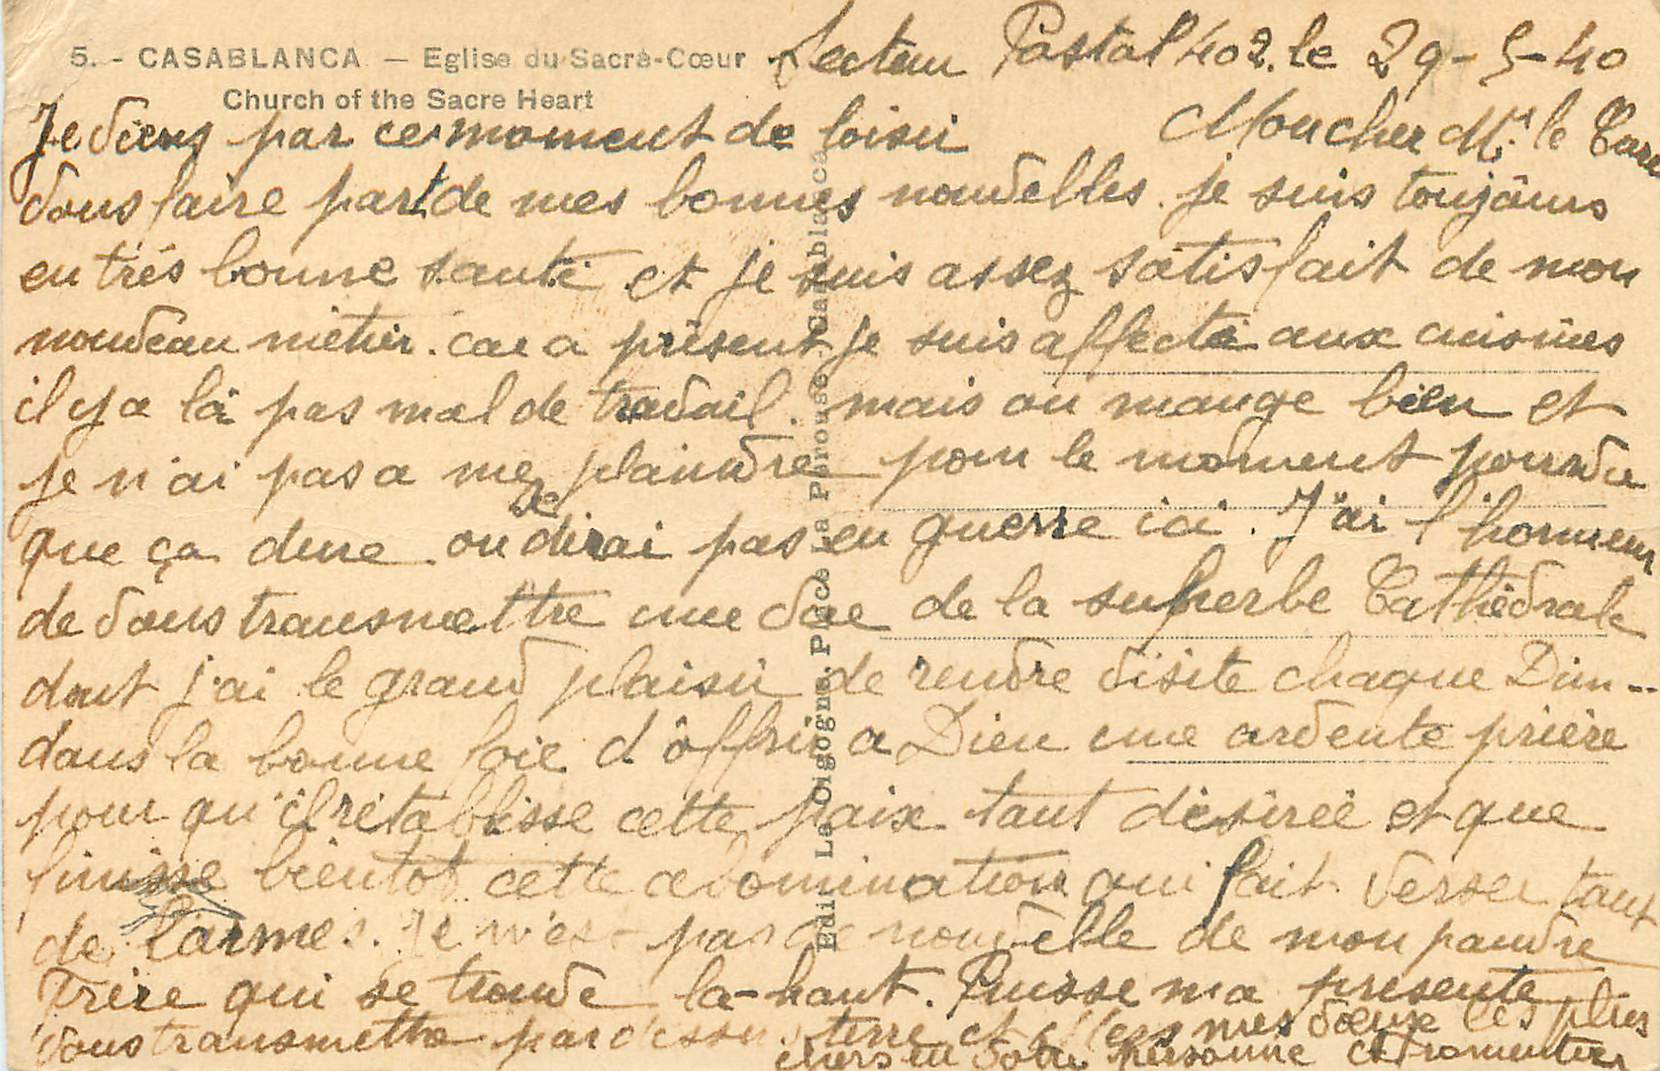 5. - CASABLANCA — Eglise du Sacré-Cœur
Church of the Sacre Heart
Secteur Postal 402. le 29-5-40
Mon cher Mr. le Curé
Je viens par ce moment de loisir
vous faire part de mes bonnes nouvelles. je suis toujours
en très bonne santé et je suis assez satisfait de mon
nouveau métier. car a présent je suis affecté aux cuisines
il y a là pas mal de travail. mais on mange bien et
je n'ai pas a me plaindre pour le moment pourvu
que ça dure on se dirai pas en guerre ici. J'ai l'honneur
de vous transmettre une vue de la superbe Cathédrale
dont j'ai le grand plaisir de rendre visite chaque Dim--
dans la bonne foie d'offrir a Dieu une ardente prière
pour qu'il rétablisse cette paix tant désirée et que
finisse bientot cette abomination qui fait verser tant
de larmes. Je n'est pas de nouvelle de mon pauvre
Frère qui se trouve la-haut. Puisse ma présente
vous transmettre par dessus terre et mers mes vœux les plus
chers en votre personne et
Edit. La Cigogne. Place La Pérouse. Casablanca